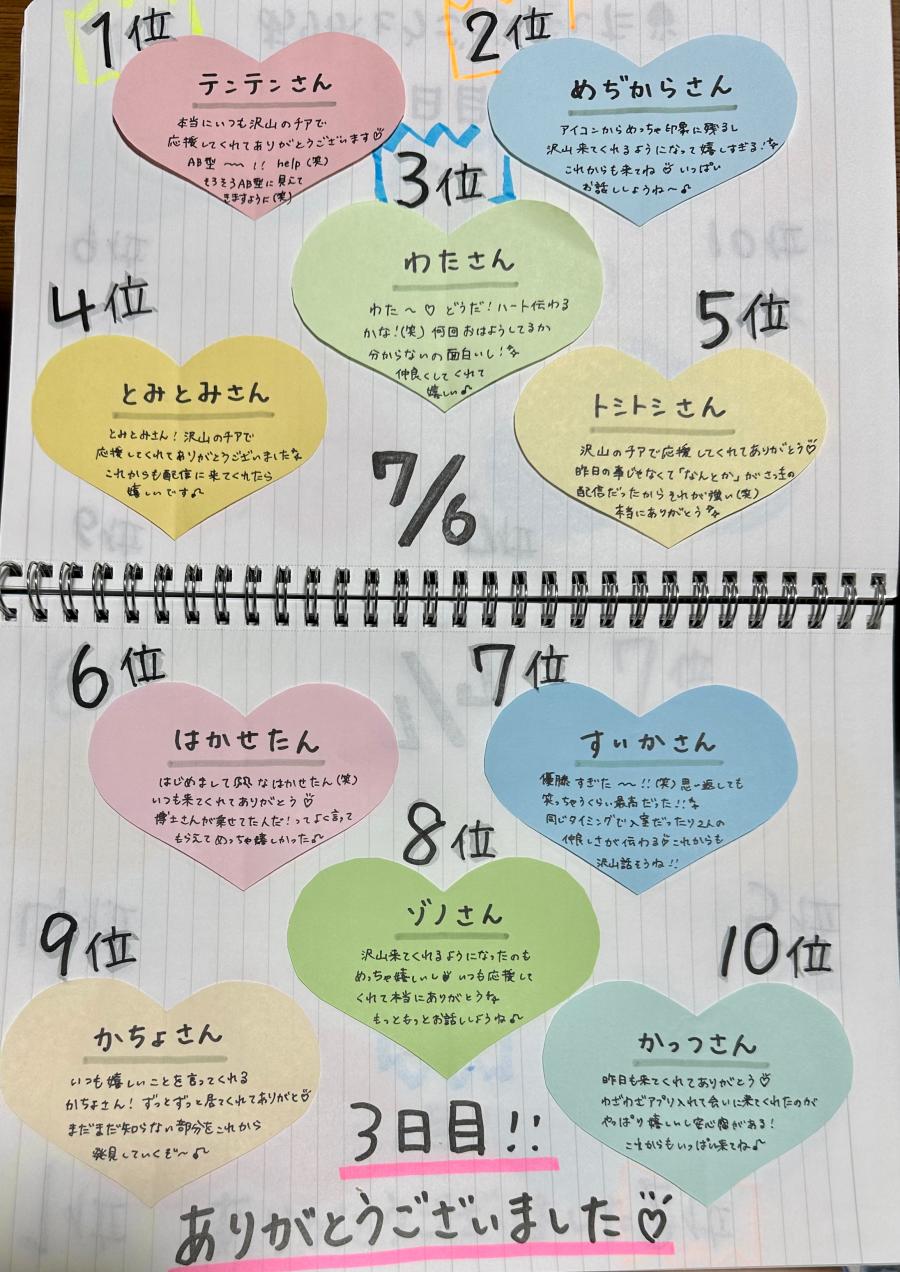 1位
テンテンさん
本当にいつも沢山のチアで
応援してくれてありがとうございます
AB型 〜〜 !! help (笑)
そろそろAB型に見えて
きますように(笑)
2位
めぢからさん
アイコンからめっちゃ印象に残るし
沢山来てくれるようになって嬉しすぎる!
これからも来てね いっぱい
お話ししようね〜♪
3位
わたさん
わた〜♡ どうだ!ハート伝わる
かな!(笑) 何回おはようしてるか
分からないの面白いし!
仲良くしてくれて
嬉しい♪
4位
とみとみさん
とみとみさん! 沢山のチアで
応援してくれてありがとうございました
これからも配信に来てくれたら
嬉しいです♫
5位
トシトシさん
沢山のチアで応援してくれてありがとう♡
昨日の事じゃなくて「なんとか」がさっきの
配信だったからそれが強い(笑)
本当にありがとう
7/6
6位
はかせたん
はじめまして風なはかせたん(笑)
いつも来てくれてありがとう♡
博士さんが乗せてた人だ!ってよく言って
もらえてめっちゃ嬉しかった♫
7位
すいかさん
優勝すぎた〜〜!!(笑)思い返しても
笑っちゃうくらい最高だった!!
同じタイミングで入室だったり2人の
仲良しさが伝わる これからも
沢山話そうね!!
8位
ゾノさん
沢山来てくれるようになったのも
めっちゃ嬉しいし いつも応援して
くれて本当にありがとう
もっともっとお話ししようね♫
9位
かちょさん
いつも嬉しいことを言ってくれる
かちょさん! ずっとずっと居てくれてありがと♡
まだまだ知らない部分をこれから
発見していくぞ〜♫
10位
かっつさん
昨日も来てくれてありがとう♡
わざわざアプリ入れて会いに来てくれたのが
やっぱり嬉しいし安心感がある!
これからもいっぱい来てね♪
3日目!!
ありがとうございました♡